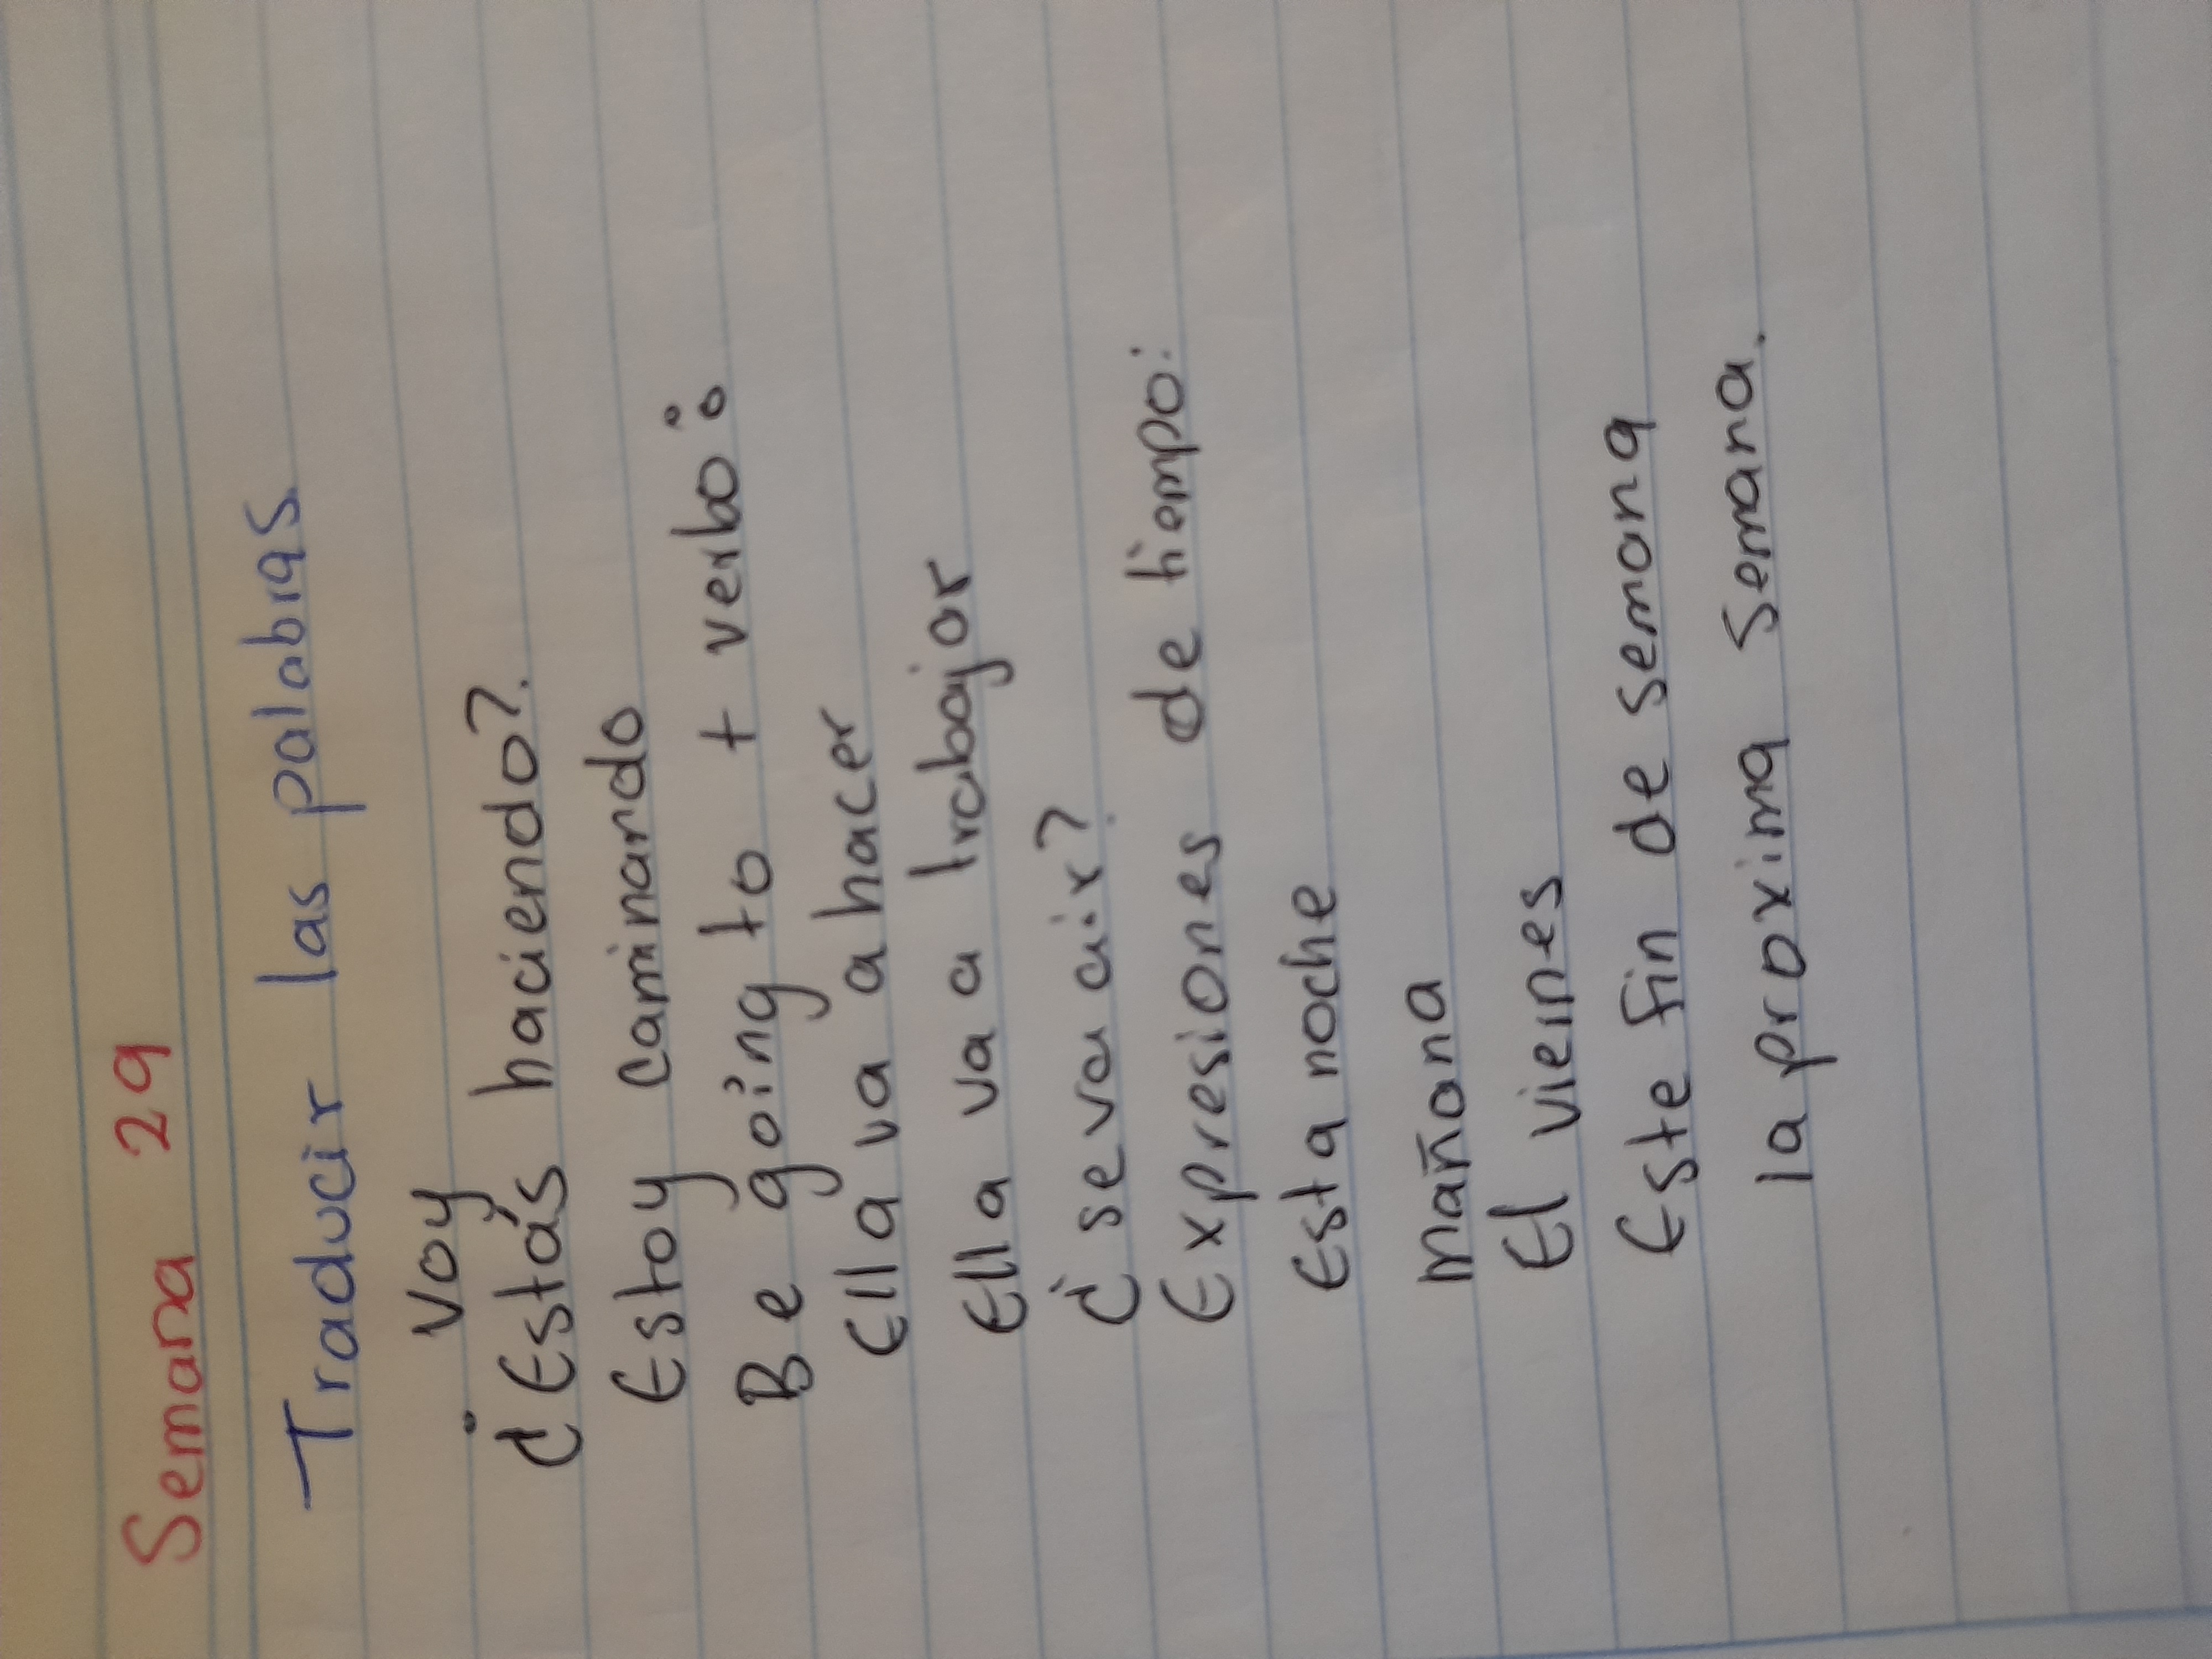 Semana 29
Traducir las palabras
Voy
¿Estás haciendo?
Estoy caminando
Be going to + verbo:
Ella va a hacer
Ella va a trabajar
¿se va a ir?
Expresiones de tiempo:
Esta noche
mañana
El viernes
Este fin de semana
la proxima semana.